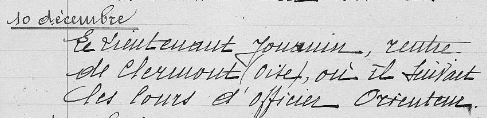 10 décembre
Le Lieutenant Jouanin, rentre
de Clermont (Oise), où il suivait
les cours d'officier Orienteur.